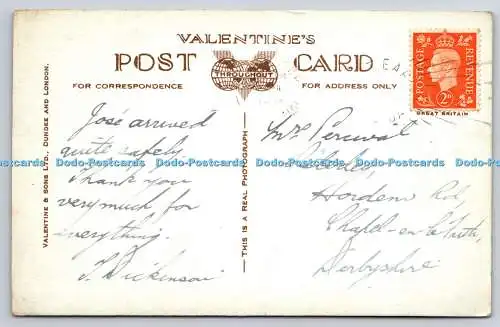 VALENTINE'S
POST CARD
THROUGHOUT
FOR CORRESPONDENCE
FOR ADDRESS ONLY
POSTAGE
REVENUE
2D
GREAT BRITAIN
VALENTINE & SONS LTD. DUNDEE AND LONDON.
THIS IS A REAL PHOTOGRAPH
José arrived
quite safely.
Thank you
very much for
everything.
T. Dickenson
Mrs Percival
Hordens Rd,
Chapel-en-le-Frith,
Derbyshire
Dodo-Postcards Dodo-Postcards Dodo-Postcards Dodo-Postcards Dodo-Postcards